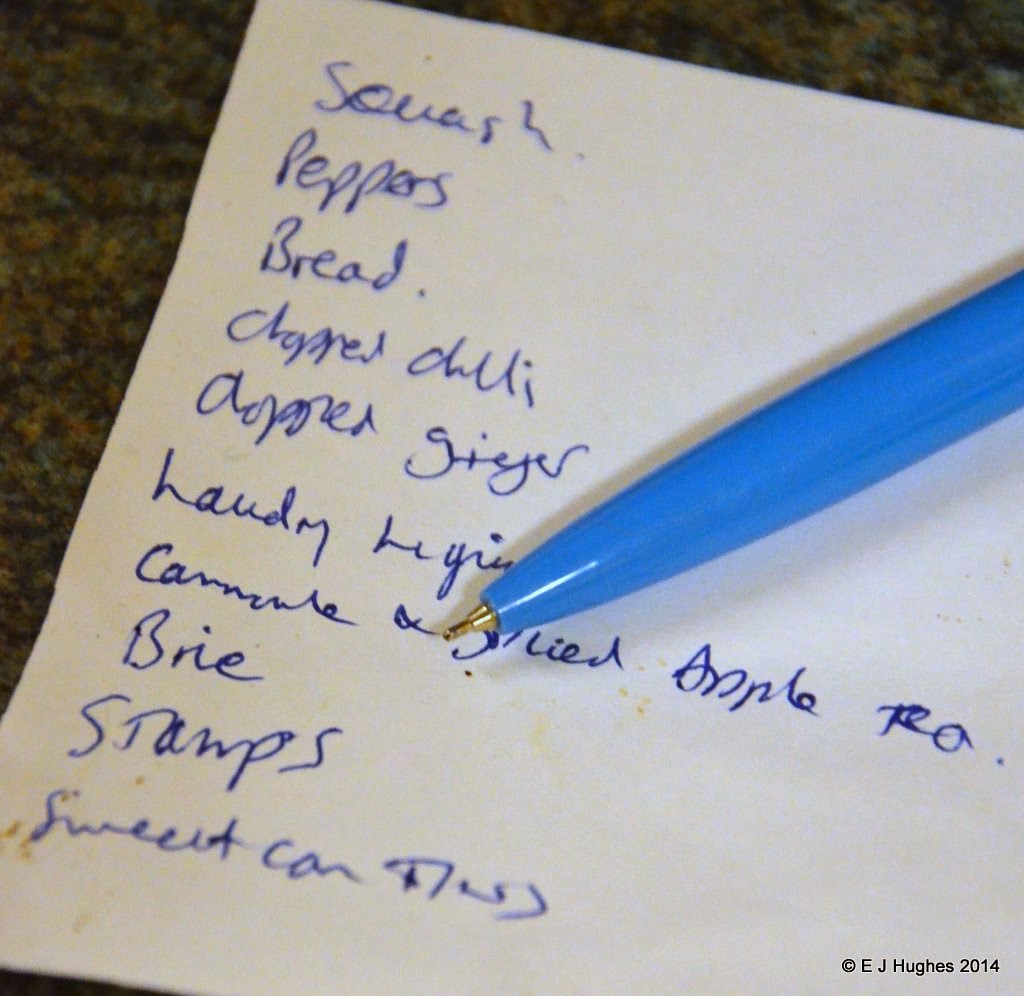 Squash.
Peppers
Bread.
Chopped chilli
Chopped ginger
Laundry
Camomile & spiced Apple Tea.
Brie
Stamps
Sweet corn Tins
© E J Hughes 2014